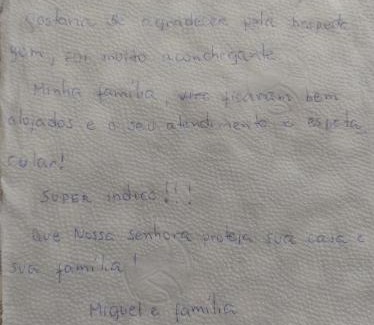 gostaria de agradecer pela hospeda
gem, foi muito aconchegante
Minha família, ficaram bem
alojados e o seu atendimento é espeta
cular!
SUPER indico!!!
Que Nossa Senhora proteja sua casa e
sua família!
Miguel e família